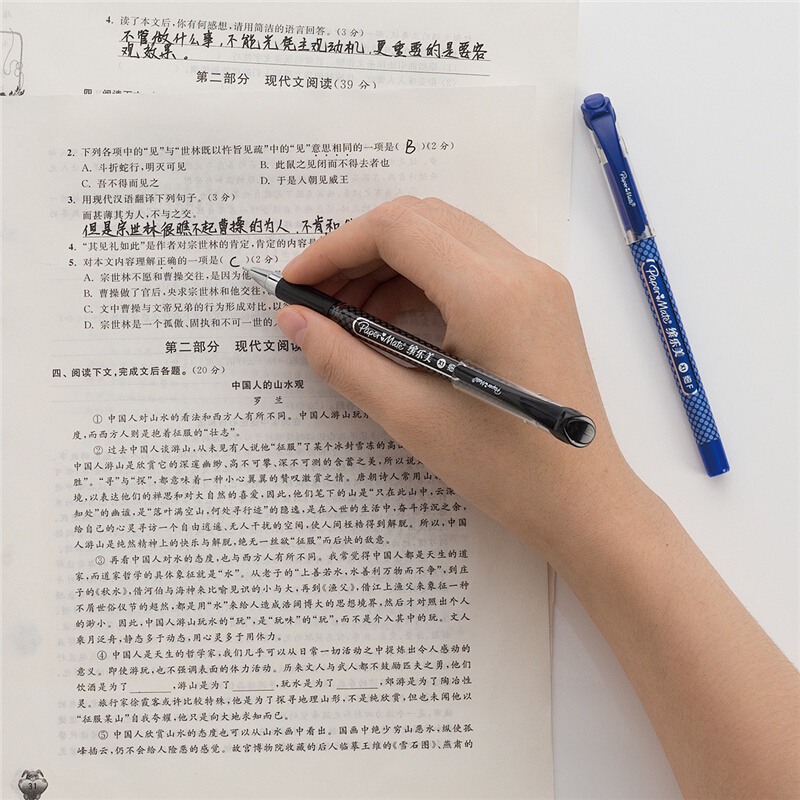 4. 读了本文后，你有何感想，请用简洁的语言回答。（3 分）
不管做什么事，不能光凭主观动机，更重要的是要客
观效果。
第二部分 现代文阅读（39 分）
2. 下列各项中的“见”与“世林既以忤旨见疏”中的“见”意思相同的一项是( B )（2 分）
A. 斗折蛇行，明灭可见 B. 此鼠之见闭而不得去者也
C. 吾不得而见之 D. 于是入朝见威王
3. 用现代汉语翻译下列句子。（3 分）
而甚薄其为人，不与之交。
但是宗世林很瞧不起曹操的为人，不肯和
4. “其见礼如此”是作者对宗世林的肯定，肯定的内容是
5. 对本文内容理解正确的一项是( C )（2 分）
A. 宗世林不愿和曹操交往，是因为他
B. 曹操做了官后，央求宗世林和他交往，
C. 文中曹操与文帝兄弟的行为形成对比，以
D. 宗世林是一个孤傲、固执和不可一世的人
第二部分 现代文阅读
四、阅读下文，完成文后各题。（20 分）
中国人的山水观
罗 兰
① 中国人对山水的看法和西方人有所不同。中国人游山玩水
度，而西方人则是抱着征服的“壮志”。
② 过去中国人谈游山，从未见有人说他“征服”了某个冰封雪冻的高山
中国人游山是欣赏它的深邃幽渺、高不可攀、深不可测的含蓄之美，所以说
胜”。“寻”与“探”，都意味着一种小心翼翼的赞叹激赏之情。唐朝诗人常用山
境，以表达他们的禅思和对大自然的喜爱，因此，他们笔下的山是“只在此山中，云深
知处”的幽谧，是“落叶满空山，何处寻行迹”的隐逸，是在入世的生活中，奋斗浮沉之余，
给自己的心灵寻访一个自由逍遥、无人干扰的空间，使人间桎梏得到解脱。所以，中国
人游山是纯然精神上的快乐与解脱，绝无一丝欲“征服”而后快的敌意。
③ 再看中国人对水的态度，也与西方人有所不同。我常觉得中国人都是天生的道
家，而道家哲学的具体象征就是“水”。从老子的“上善若水，水善利万物而不争”，到庄
子的《秋水》，借河伯与海神来比喻见识的小与大，再到《渔父》，借江上渔父来象征一种
不屑世俗仪节的超然，都是用“水”来给人造成浩阔博大的思想境界，然后才对照出个人
的渺小。因此，中国人游山玩水的“玩”，是“玩味”的“玩”，而不是介入其中的玩。文人
乘月泛舟，静态多于动态，用心灵多于用体力。
④ 中国人是天生的哲学家，我们几乎可以从日常一切活动之中提炼出令人感动的
意义。即使游玩，也不强调表面的体力活动。历来文人与武人都不鼓励匹夫之勇，他们
饮酒是为了______，游山是为了______，玩水是为了______，郊游是为了陶冶性
灵。旅行家徐霞客或许比较特殊，他是为了探寻地理山形，不是纯欣赏，但也未闻他以
“征服某山”自我夸耀，他只是向大地求知而已。
⑤ 中国人欣赏山水的态度也可以从山水画中看出。国画中绝少穷山恶水，纵使孤
峰插云，仍不会给人险恶的感觉。故宫博物院收藏的后人临摹王维的《雪石图》、燕肃的
31
Paper Mate 缤乐美
Paper Mate
Paper Mate
Paper Mate 缤乐美